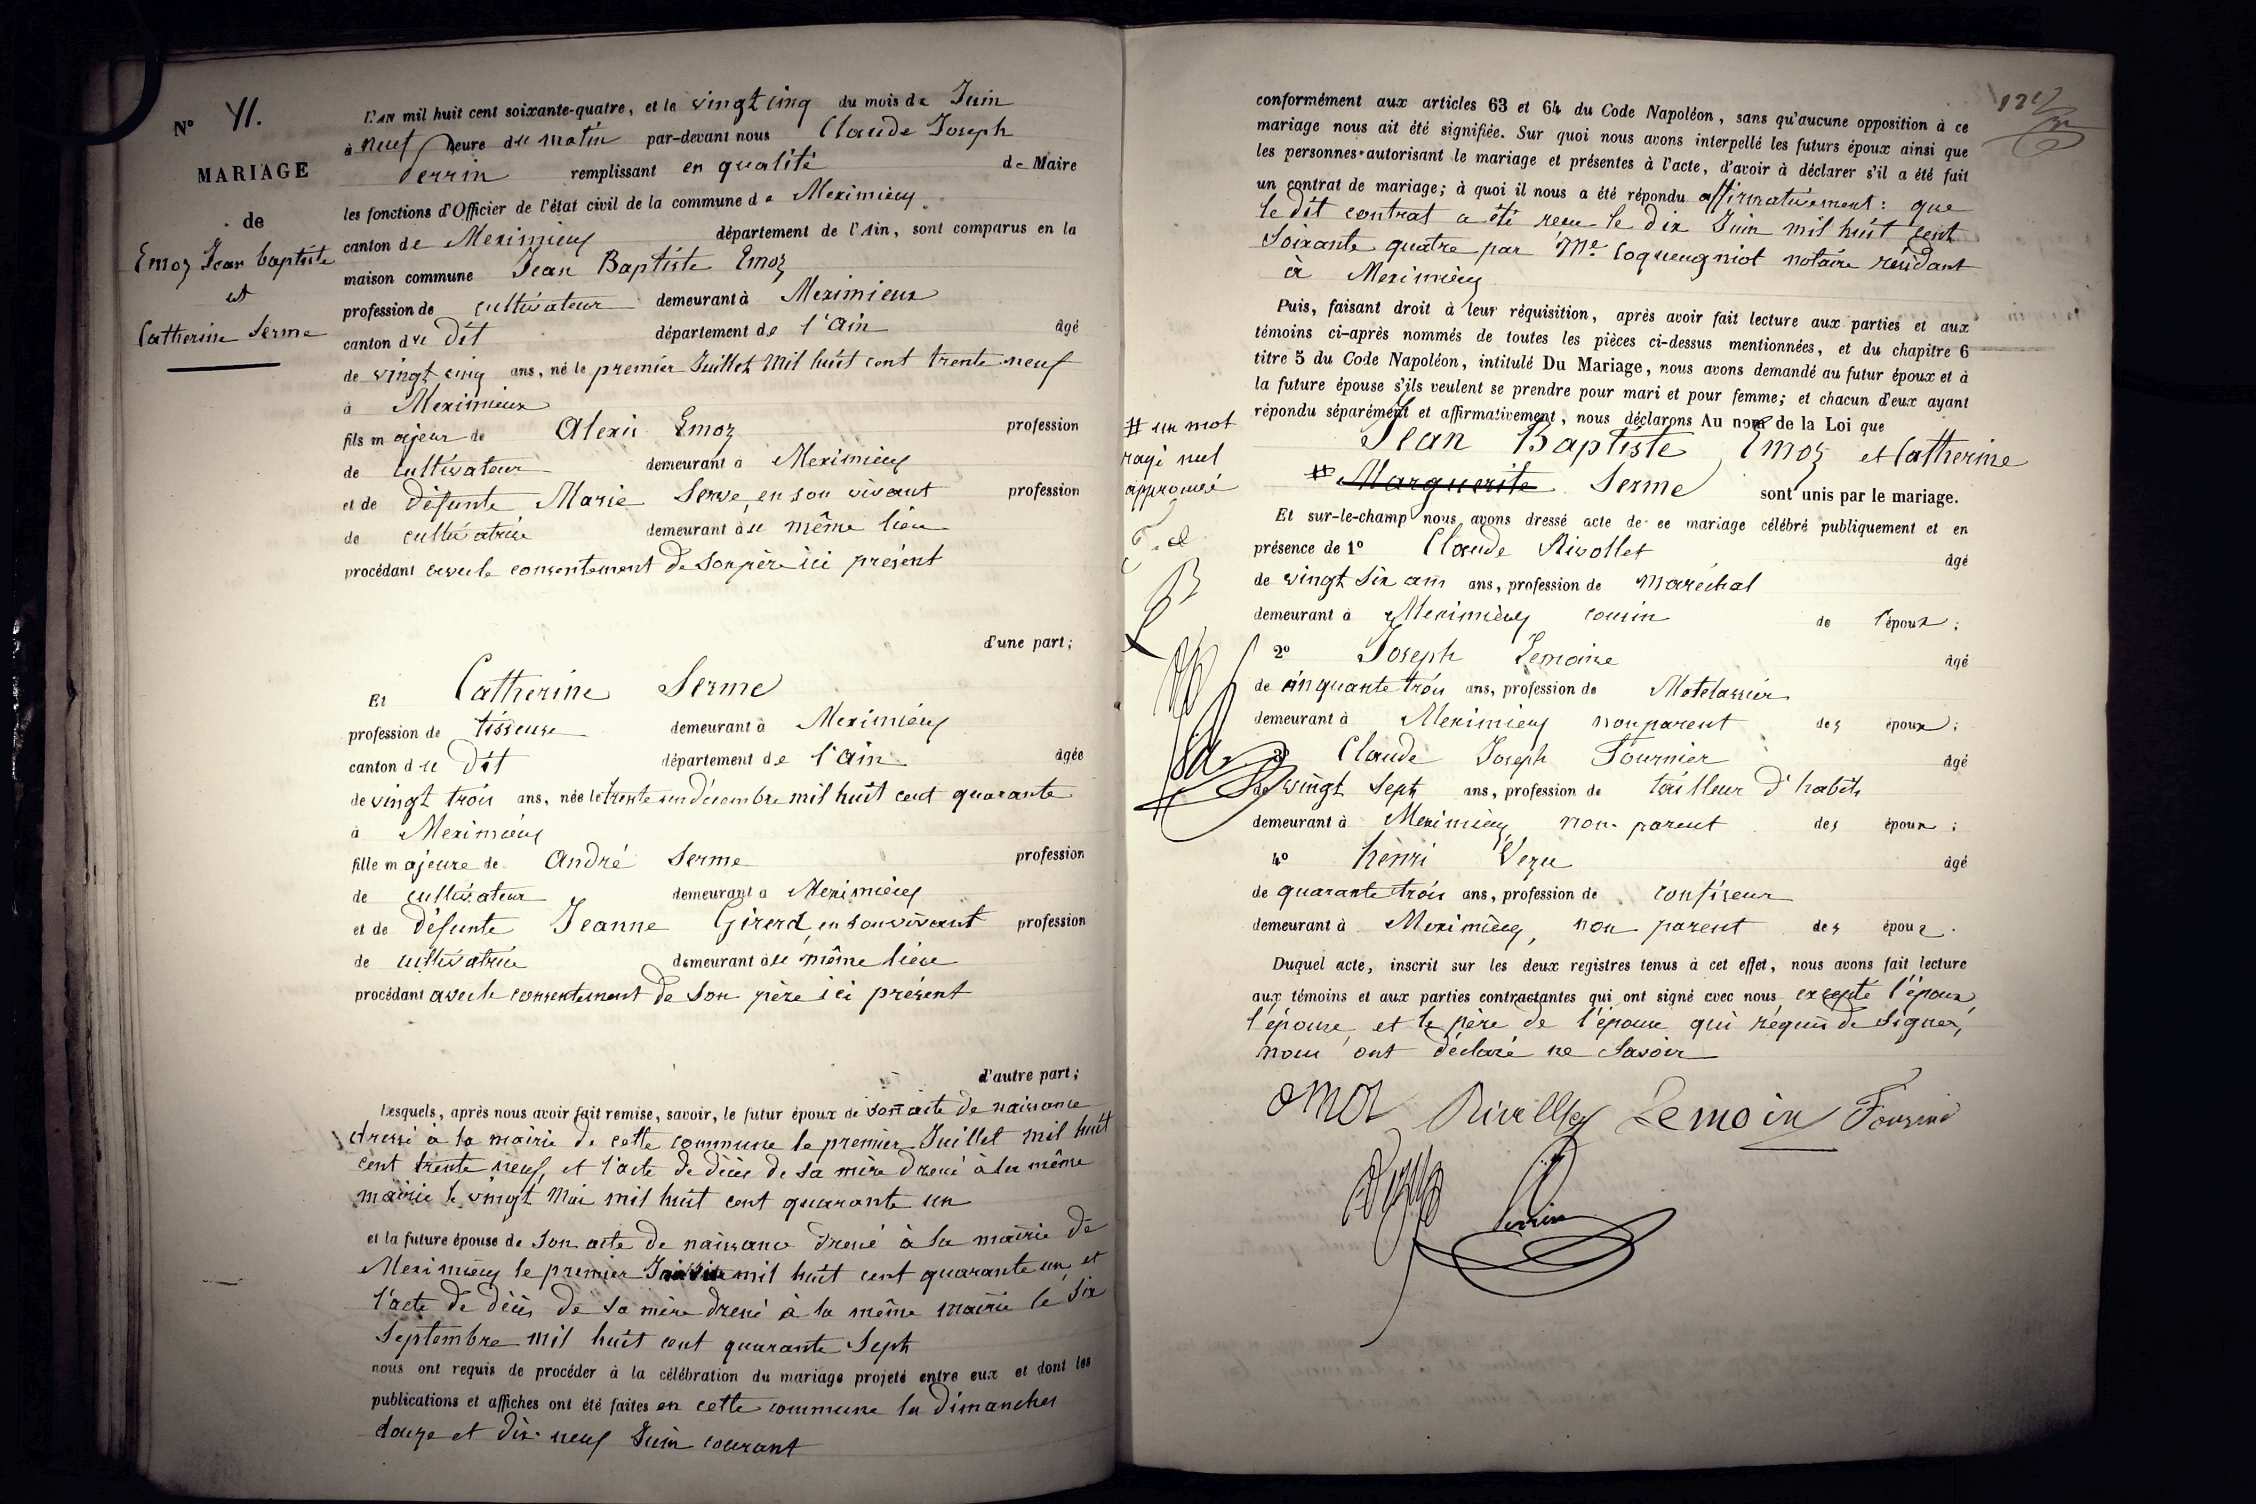 N° 41.
MARIAGE
de
Emoz Jean baptiste
et
Catherine Serme
L'AN mil huit cent soixante-quatre, et le vingt cinq du mois de Juin
à neuf heure du matin par-devant nous Claude Joseph
Perrin remplissant en qualité de Maire
les fonctions d'Officier de l'état civil de la commune de Meximieux
canton de Meximieux département de l'Ain, sont comparus en la
maison commune Jean Baptiste Emoz
profession de cultivateur demeurant à Meximieux
canton du dit département de l'Ain âgé
de vingt cinq ans, né le premier Juillet Mil huit cent trente neuf
à Meximieux
fils majeur de Alexis Emoz profession
de cultivateur demeurant à Meximieux
et de défunte Marie Serve, en son vivant profession
de cultivatrice demeurant au même lieu
procédant avec le consentement de son père ici présent
d'une part;
Et Catherine Serme
profession de tisseuse demeurant à Meximieux
canton du dit département de l'Ain âgée
de vingt trois ans, née le trente un décembre mil huit cent quarante
à Meximieux
fille majeure de André Serme profession
de cultivateur demeurant à Meximieux
et de défunte Jeanne Girerd, en son vivant profession
de cultivatrice demeurant au même lieu
procédant avec le consentement de son père ici présent
d'autre part;
Lesquels, après nous avoir fait remise, savoir, le futur époux de son acte de naissance
dressé à la mairie de cette commune le premier Juillet mil huit
cent trente neuf, et l'acte de décès de sa mère dressé à la même
mairie le vingt Mai mil huit cent quarante un
et la future épouse de son acte de naissance dressé à la mairie de
Meximieux le premier mil huit cent quarante un, et
l'acte de décès de sa mère dressé à la même mairie le six
Septembre mil huit cent quarante Sept
nous ont requis de procéder à la célébration du mariage projeté entre eux et dont les
publications et affiches ont été faites en cette commune les dimanches
douze et dix-neuf Juin courant
conformément aux articles 63 et 64 du Code Napoléon, sans qu'aucune opposition à ce
mariage nous ait été signifiée. Sur quoi nous avons interpellé les futurs époux ainsi que
les personnes autorisant le mariage et présentes à l'acte, d'avoir à déclarer s'il a été fait
un contrat de mariage; à quoi il nous a été répondu affirmativement: que
le dit contrat a été reçu le dix Juin mil huit cent
soixante quatre par Me Coqueugniot notaire résidant
à Meximieux
Puis, faisant droit à leur réquisition, après avoir fait lecture aux parties et aux
témoins ci-après nommés de toutes les pièces ci-dessus mentionnées, et du chapitre 6
titre 5 du Code Napoléon, intitulé Du Mariage, nous avons demandé au futur époux et à
la future épouse s'ils veulent se prendre pour mari et pour femme; et chacun d'eux ayant
répondu séparément et affirmativement, nous déclarons Au nom de la Loi que
Jean Baptiste Emoz et Catherine
# Marguerite Serme sont unis par le mariage.
# un mot
rayé nul
approuvé
Et sur-le-champ nous avons dressé acte de ce mariage célébré publiquement et en
présence de 1° Claude Rivollet âgé
de vingt six ans ans, profession de maréchal
demeurant à Meximieux cousin de l'époux;
2° Joseph Lemoine âgé
de cinquante trois ans, profession de Matelassier
demeurant à Meximieux non parent des époux;
3° Claude Joseph Fournier âgé
de vingt Sept ans, profession de tailleur d'habits
demeurant à Meximieux, non parent des époux;
4° henri Vezu âgé
de quarante trois ans, profession de confiseur
demeurant à Meximieux, non parent des époux.
Duquel acte, inscrit sur les deux registres tenus à cet effet, nous avons fait lecture
aux témoins et aux parties contractantes qui ont signé avec nous excepté l'époux,
l'épouse et le père de l'épouse qui réquis de signer,
nous ont déclaré ne savoir
Emoz Rivollet Lemoin Fournier
Perrin